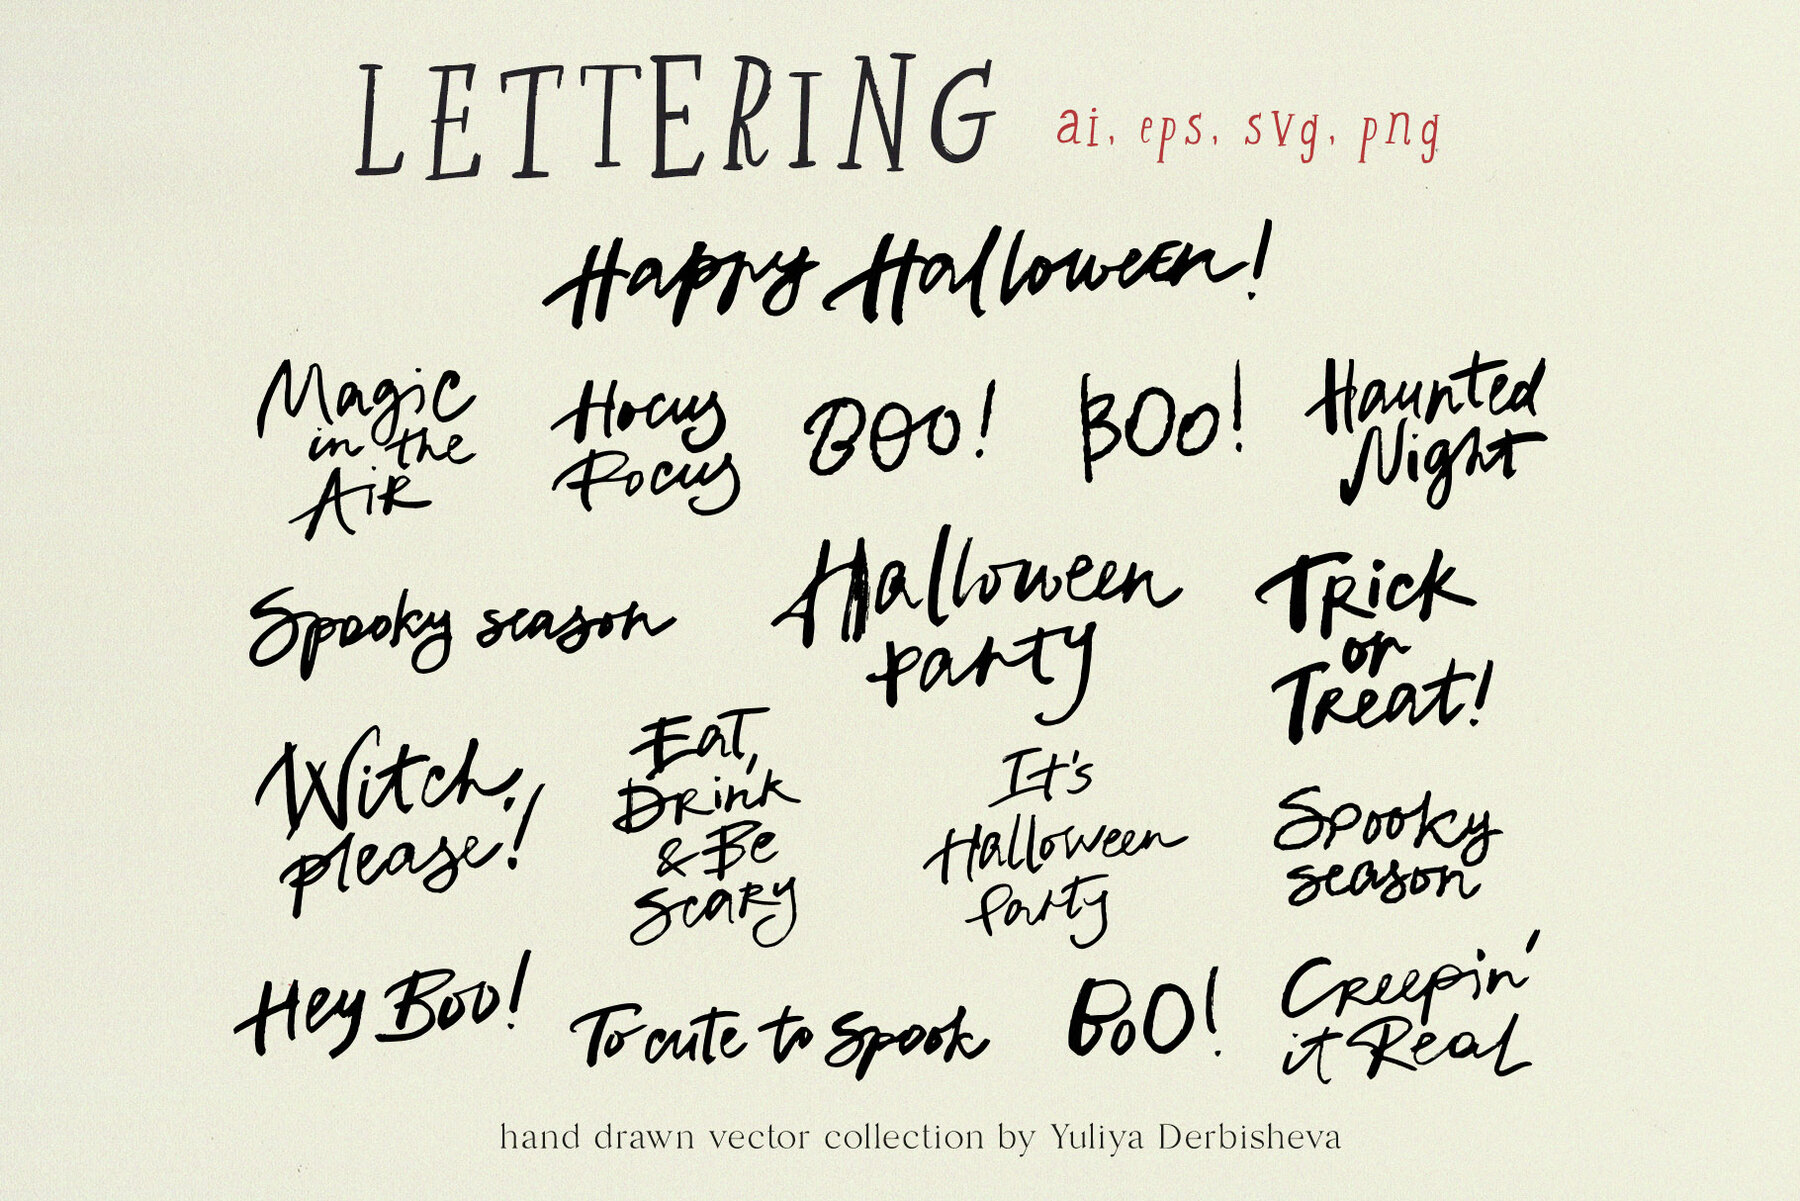 LETTERING
ai, eps, svg, png
Happy Halloween!
Magic
in the
Air
Hocus
Pocus
BOO!
BOO!
Haunted
Night
Spooky season
Halloween
party
Trick
or
Treat!
Witch,
please!
Eat,
Drink
& Be
Scary
It's
Halloween
Party
Spooky
season
Hey Boo!
To cute to spook
BoO!
Creepin'
it Real
hand drawn vector collection by Yuliya Derbisheva